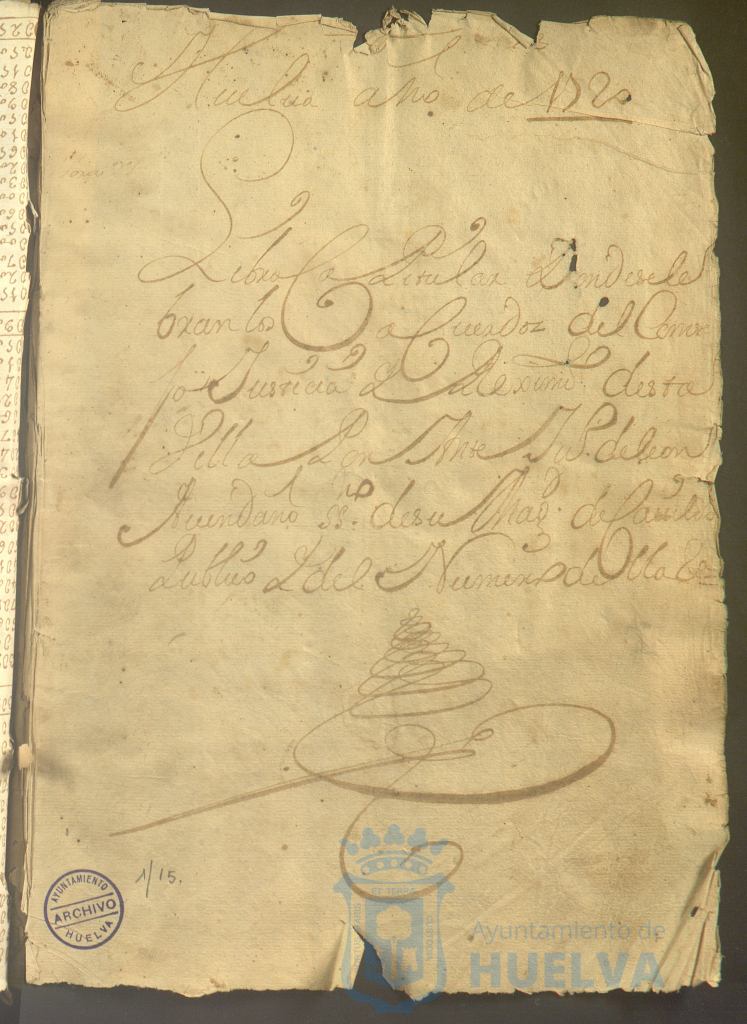 Huelva año de 1720
Libro Capitular Donde se sele
bran los Cacuerdoz del Conse
jo Justicia y Reximi.º desta
Villa Por Ante Ju.º de leon
Avendaño ss.no de su Mag.d de Castilla
Publico y del Numero de Ella &
1/15.
AYUNTAMIENTO
ARCHIVO
HUELVA
Ayuntamiento de
HUELVA